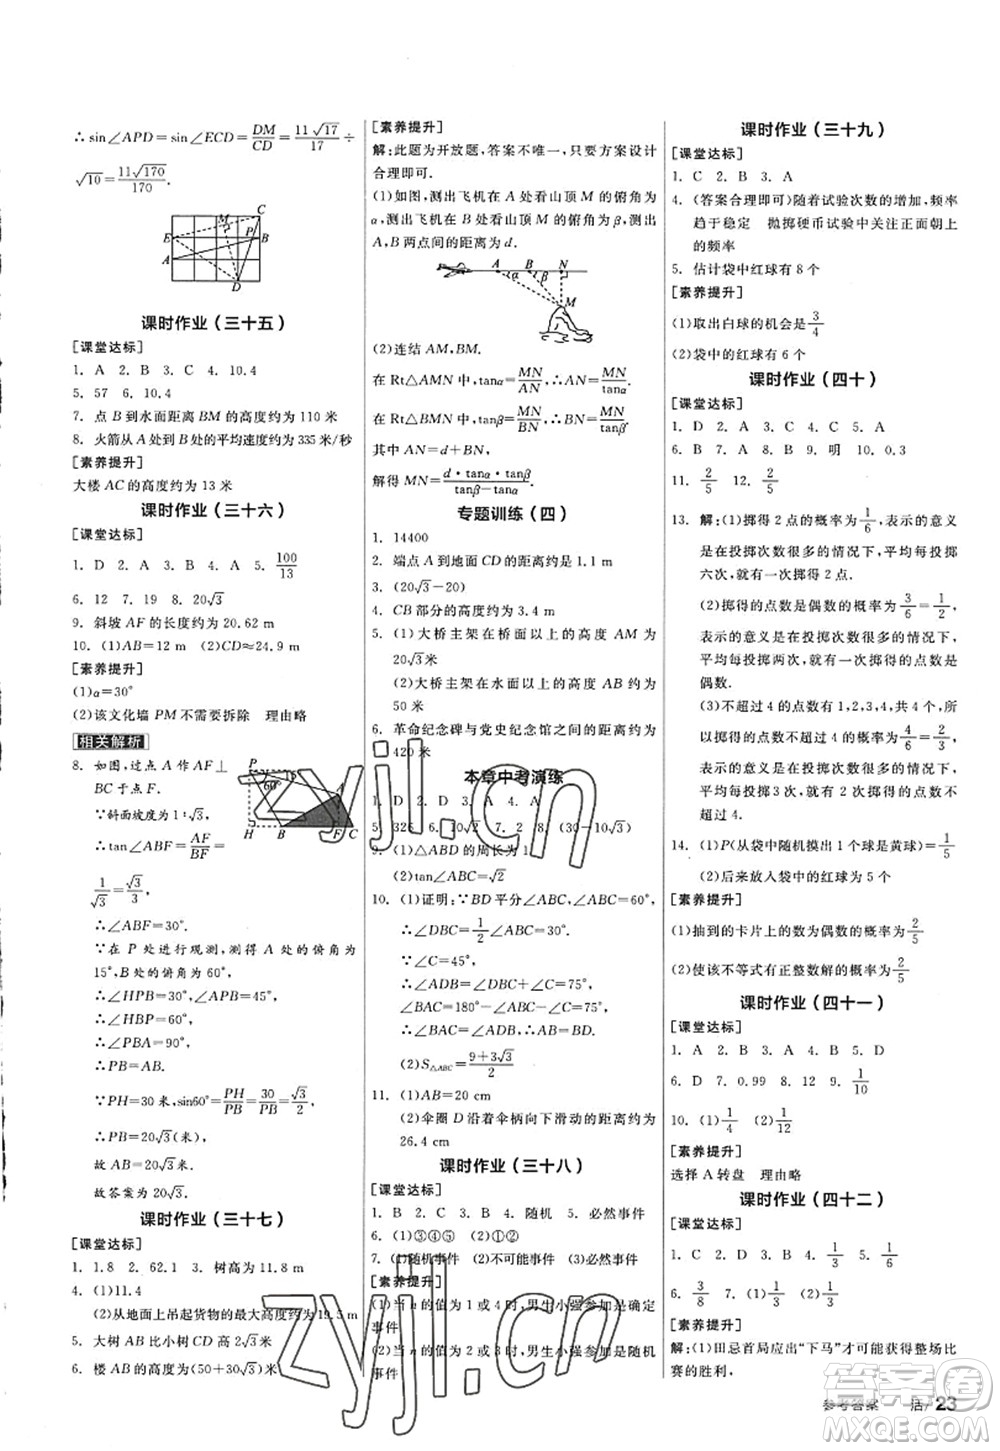 ∴sin∠APD=sin∠ECD=DM/CD=11√17/17÷
√10=11√170/170.
E A M C P B D
课时作业(三十五)
[课堂达标]
1. A 2. B 3. C 4. 10.4
5. 57 6. 10.4
7. 点 B 到水面距离 BM 的高度约为 110 米
8. 火箭从 A 处到 B 处的平均速度约为 335 米/秒
[素养提升]
大楼 AC 的高度约为 13 米
课时作业(三十六)
[课堂达标]
1. D 2. A 3. B 4. A 5. 100/13
6. 12 7. 19 8. 20√3
9. 斜坡 AF 的长度约为 20.62 m
10. (1)AB=12 m (2)CD≈24.9 m
[素养提升]
(1)α=30°
(2)该文化墙 PM 不需要拆除 理由略
相关解析
8. 如图,过点 A 作 AF⊥
BC 于点 F.
∵斜面坡度为 1∶√3,
∴tan∠ABF=AF/BF=
1/√3=√3/3,
∴∠ABF=30°.
∵在 P 处进行观测,测得 A 处的俯角为
15°,B 处的俯角为 60°,
∴∠HPB=30°,∠APB=45°,
∴∠HBP=60°,
∴∠PBA=90°,
∴PB=AB.
∵PH=30 米,sin60°=PH/PB=30/PB=√3/2,
∴PB=20√3米,
故 AB=20√3米.
故答案为 20√3.
课时作业(三十七)
[课堂达标]
1. 1.8 2. 62.1 3. 树高为 11.8 m
4. (1)11.4
(2)从地面上吊起货物的最大高度约为 19.5 m
5. 大树 AB 比小树 CD 高 2√3米
6. 楼 AB 的高度为(50+30√3)米
[素养提升]
解:此题为开放题,答案不唯一,只要方案设计
合理即可.
(1)如图,测出飞机在 A 处看山顶 M 的俯角为
α,测出飞机在 B 处看山顶 M 的俯角为β,测出
A,B 两点间的距离为 d.
A B N α β M
(2)连结 AM,BM.
在 Rt△AMN 中,tanα=MN/AN,∴AN=MN/tanα.
在 Rt△BMN 中,tanβ=MN/BN,∴BN=MN/tanβ.
其中 AN=d+BN,
解得 MN=d·tanα·tanβ/tanβ−tanα.
专题训练(四)
1. 14400
2. 端点 A 到地面 CD 的距离约是 1.1 m
3. (20√3−20)
4. CB 部分的高度约为 3.4 m
5. (1)大桥主架在桥面以上的高度 AM 为
20√3米
(2)大桥主架在水面以上的高度 AB 约为
50 米
6. 革命纪念碑与党史纪念馆之间的距离约为
420 米
本章中考演练
1. D 2. D 3. A 4. A
5. 326 6. 10√2 7. 2 8. (30−10√3)
9. (1)△ABD 的周长为 1
(2)tan∠ABC=√2
10. (1)证明:∵BD 平分∠ABC,∠ABC=60°,
∴∠DBC=1/2∠ABC=30°.
∵∠C=45°,
∴∠ADB=∠DBC+∠C=75°,
∠BAC=180°−∠ABC−∠C=75°,
∴∠BAC=∠ADB,∴AB=BD.
(2)S△ABC=9+3√3/2
11. (1)AB=20 cm
(2)伞圈 D 沿着伞柄向下滑动的距离约为
26.4 cm
课时作业(三十八)
[课堂达标]
1. B 2. C 3. C 4. 随机 5. 必然事件
6. (1)③④⑤ (2)①②
7. (1)随机事件 (2)不可能事件 (3)必然事件
[素养提升]
(1)当 n 的值为 1 或 4 时,男生小强参加是确定
事件
(2)当 n 的值为 2 或 3 时,男生小强参加是随机
事件
课时作业(三十九)
[课堂达标]
1. C 2. B 3. A
4. (答案合理即可)随着试验次数的增加,频率
趋于稳定 抛掷硬币试验中关注正面朝上
的频率
5. 估计袋中红球有 8 个
[素养提升]
(1)取出白球的机会是3/4
(2)袋中的红球有 6 个
课时作业(四十)
[课堂达标]
1. D 2. A 3. D 4. C 5. C
6. B 7. A 8. B 9. 明 10. 0.3
11. 2/5 12. 2/5
13. 解:(1)掷得 2 点的概率为1/6,表示的意义
是在投掷次数很多的情况下,平均每投掷
六次,就有一次掷得 2 点.
(2)掷得的点数是偶数的概率为3/6=1/2,
表示的意义是在投掷次数很多的情况下,
平均每投掷两次,就有一次掷得的点数是
偶数.
(3)不超过 4 的点数有 1,2,3,4,共 4 个,所
以掷得的点数不超过 4 的概率为4/6=2/3,
表示的意义是在投掷次数很多的情况下,
平均每投掷三次,就有两次掷得的点数不
超过 4.
14. (1)P(从袋中随机摸出 1 个球是黄球)=1/5
(2)后来放入袋中的红球为 5 个
[素养提升]
(1)抽到的卡片上的数为偶数的概率为2/5
(2)使该不等式有正整数解的概率为2/5
课时作业(四十一)
[课堂达标]
1. A 2. B 3. A 4. C 5. A
6. D 7. 0.99 8. 12 9. 1/10
10. (1)1/4 (2)1/12
[素养提升]
选择 A 转盘 理由略
课时作业(四十二)
[课堂达标]
1. C 2. D 3. D 4. A 5. C
6. 3/8 7. (1)1/3 (2)2/3
[素养提升]
解:(1)田忌首局应出“下马”才可能获得整场比
赛的胜利.
参考答案 活/23
zyjl.cn
zyjl.cn
答案圈
MXQE.COM